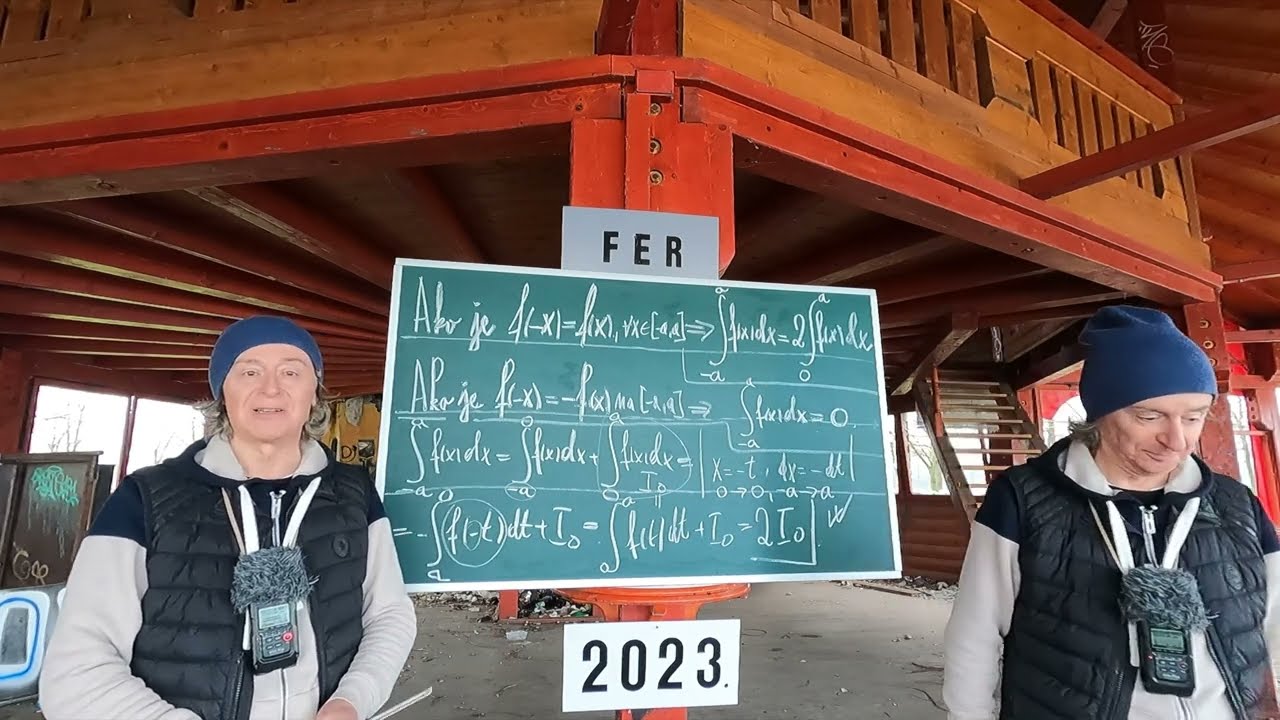 FER
Ako je f(-x)=f(x), ∀x∈[-a,a] ⇒ ∫_{-a}^{a} f(x)dx = 2∫_{0}^{a} f(x)dx
Ako je f(-x)=-f(x) na [-a,a] ⇒ ∫_{-a}^{a} f(x)dx = 0.
∫_{-a}^{a} f(x)dx = ∫_{-a}^{0} f(x)dx + ∫_{0}^{a} f(x)dx = | x=-t, dx=-dt
I_0
0→0, -a→a |
= -∫_{a}^{0} f(-t)dt + I_0 = ∫_{0}^{a} f(t)dt + I_0 = 2I_0
2023.